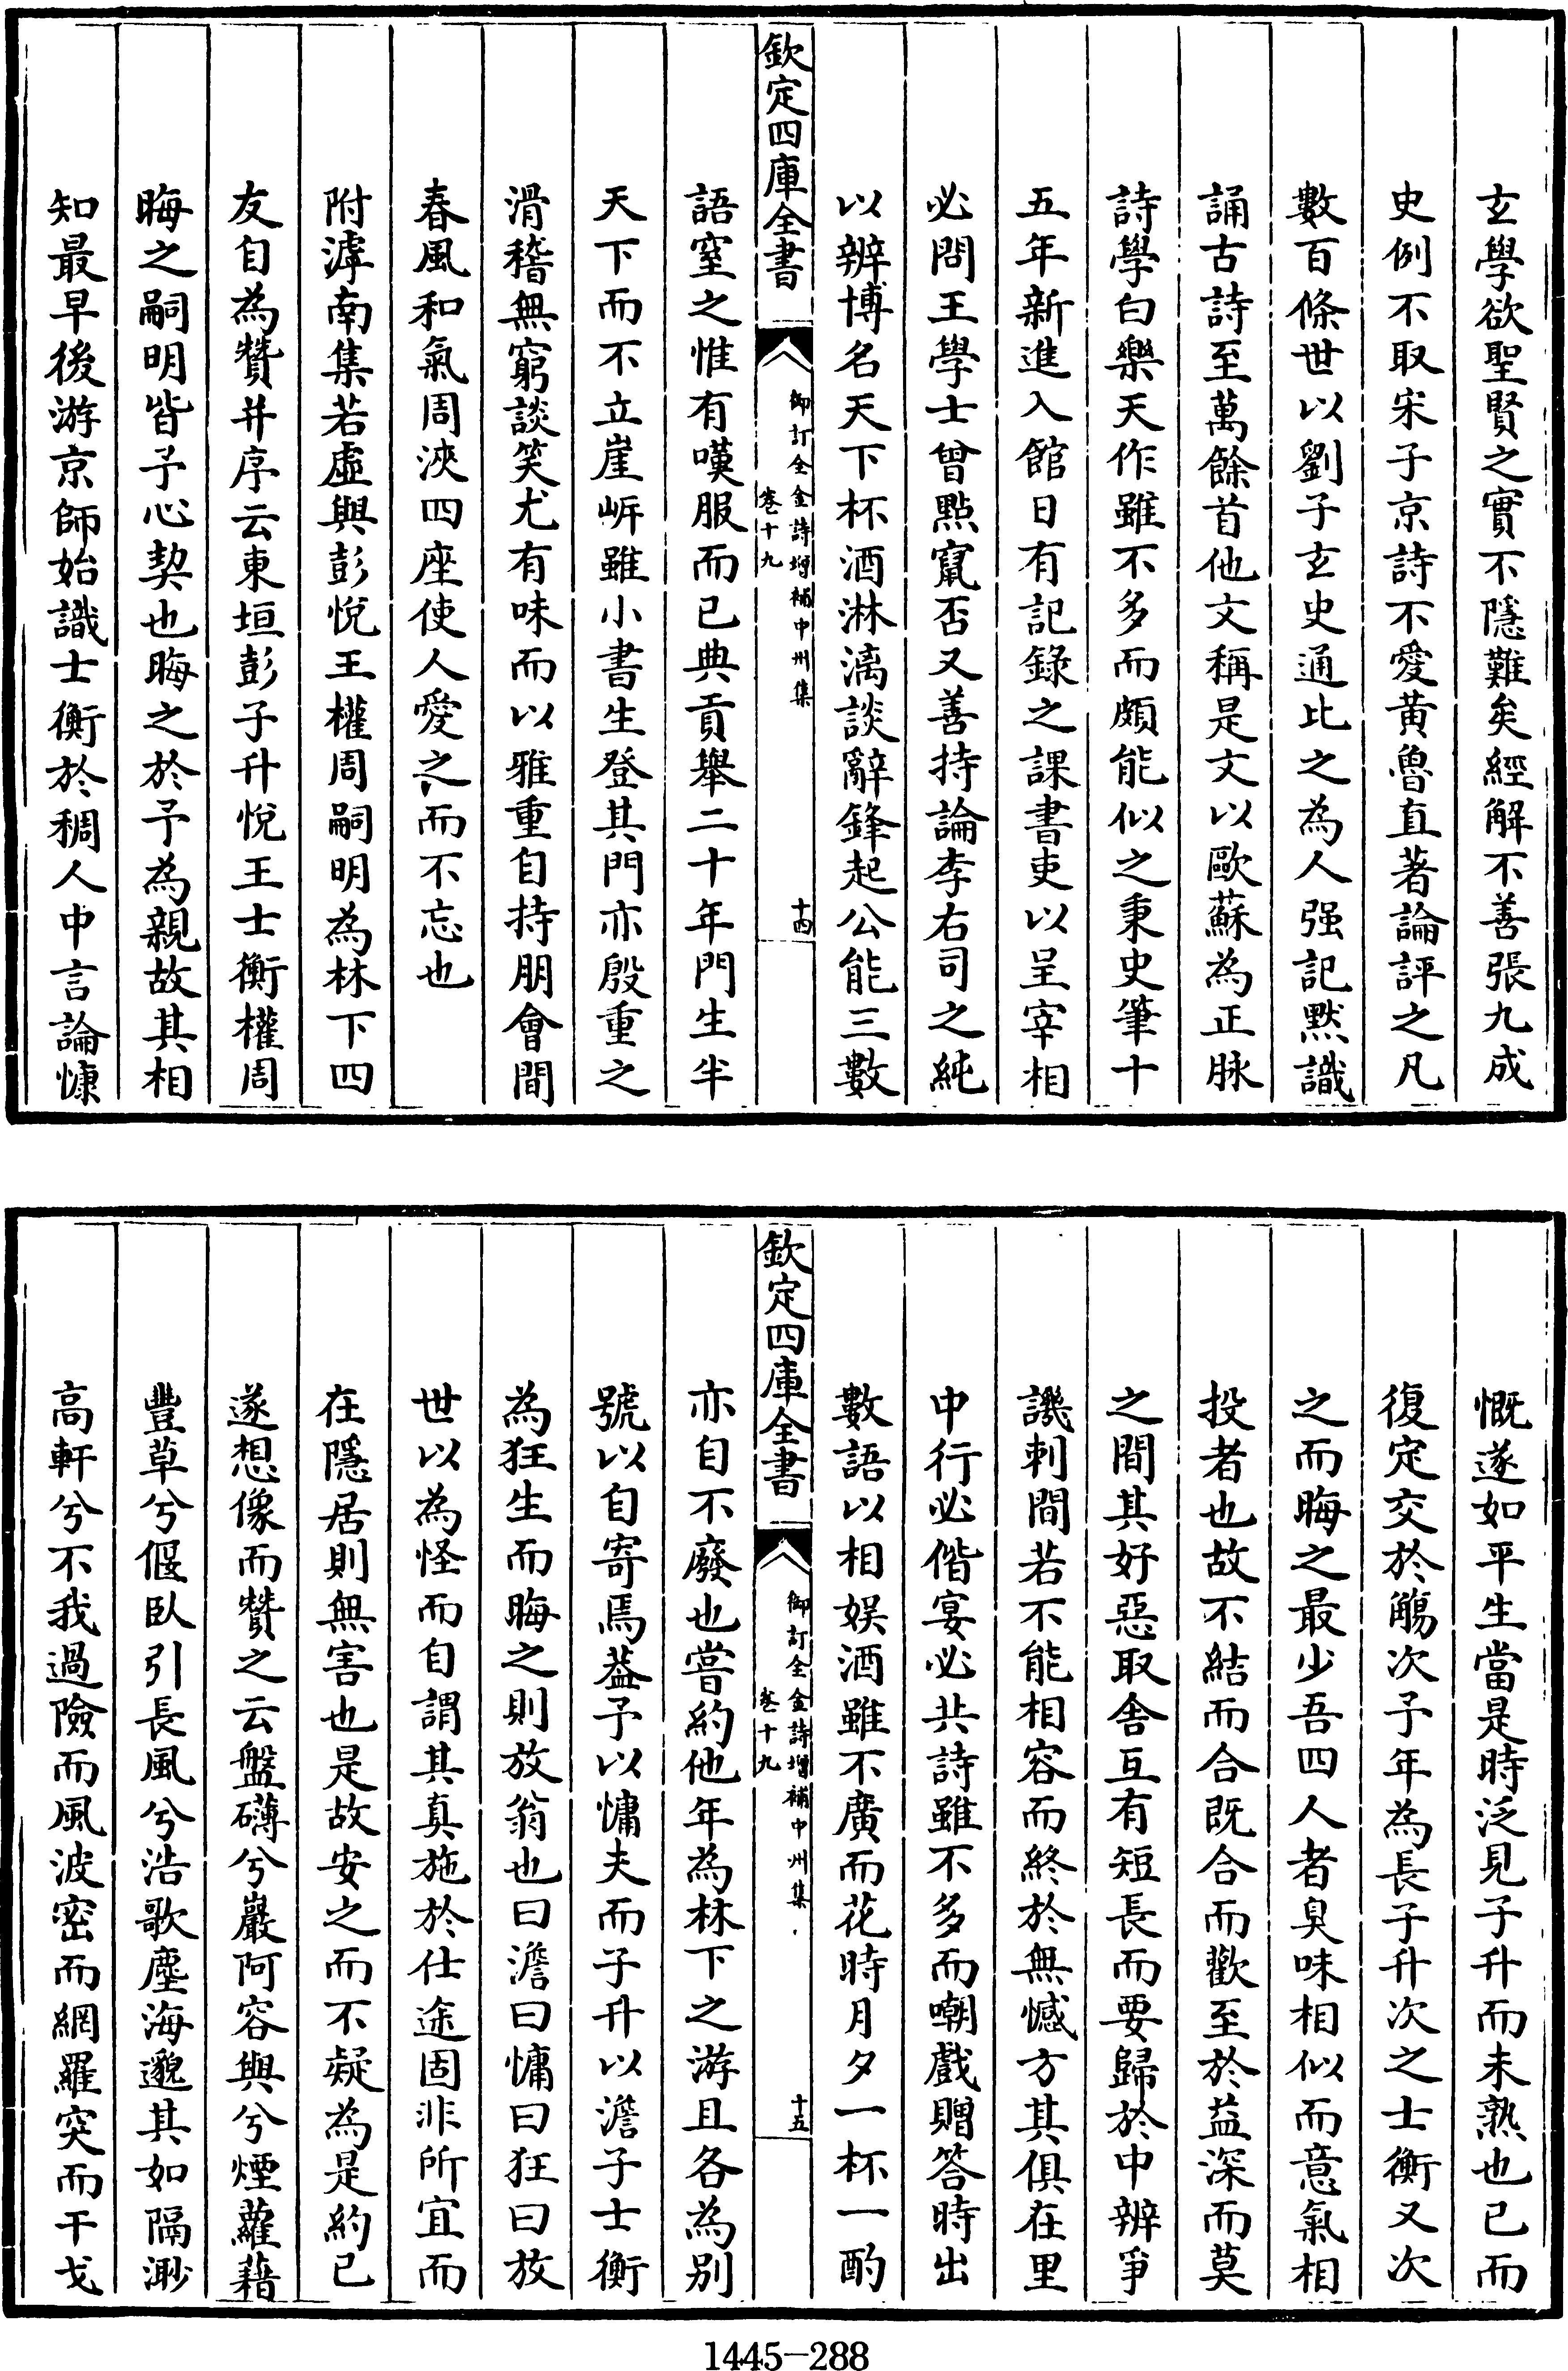 玄學欲聖賢之實不隱難矣經解不善張九成
史例不取宋子京詩不愛黃魯直著論評之凡
數百條世以劉子玄史通比之為人强記默識
誦古詩至萬餘首他文稱是文以歐蘇為正脉
詩學白樂天作雖不多而頗能似之秉史筆十
五年新進入館日有記錄之課書吏以呈宰相
必問王學士曾點竄否又善持論李右司之純
以辨博名天下杯酒淋漓談辭鋒起公能三數
欽定四庫全書
御訂全金詩增補中州集
卷十九
十四
語窒之惟有嘆服而已典貢舉二十年門生半
天下而不立崖岸雖小書生登其門亦殷重之
滑稽無窮談笑尤有味而以雅重自持朋會間
春風和氣周浹四座使人愛之而不忘也
附滹南集若虛與彭悅王權周嗣明為林下四
友自為贊并序云東垣彭子升悅王士衡權周
晦之嗣明皆予心契也晦之於予為親故其相
知最早後游京師始識士衡於稠人中言論慷
慨遂如平生當是時泛見子升而未熟也已而
復定交於觴次予年為長子升次之士衡又次
之而晦之最少吾四人者臭味相似而意氣相
投者也故不結而合既合而歡至於益深而莫
之間其好惡取舍互有短長而要歸於中辨爭
譏刺間若不能相容而終於無憾方其俱在里
中行必偕宴必共詩雖不多而嘲戲贈答時出
數語以相娛酒雖不廣而花時月夕一杯一酌
欽定四庫全書
御訂全金詩增補中州集
卷十九
十五
亦自不廢也嘗約他年為林下之游且各為別
號以自寄焉葢予以慵夫而子升以澹子士衡
為狂生而晦之則放翁也曰澹曰慵曰狂曰放
世以為怪而自謂其真施於仕途固非所宜而
在隱居則無害也是故安之而不疑為是約已
遂想像而贊之云盤礴兮巖阿容與兮煙蘿藉
豐草兮偃臥引長風兮浩歌塵海邈其如隔渺
高軒兮不我過險而風波密而網羅突而干戈
1445-288